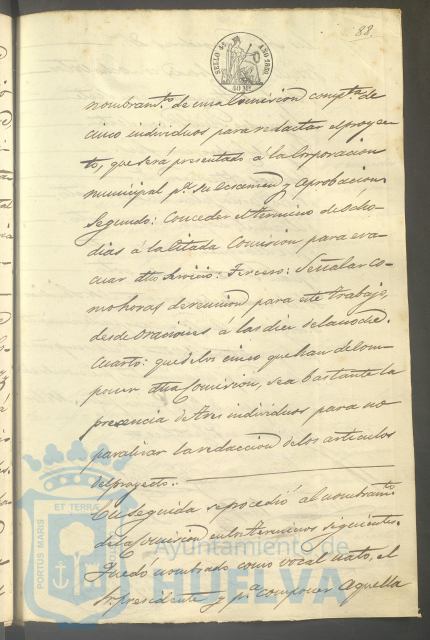 88.
SELLO 4º AÑO 1861
40 Mˢ
nombramᵗᵒ de una Comision compᵗᵃ de
cinco individuos para redactar el proyec-
to, que será presentado á la Corporacion
municipal pª su Ecsamen y aprobacion
Segundo: Conceder el termino de ocho
dias á la Citada Comision para eva-
cuar dho servicio: Tercero: Señalar co-
mo horas de reunion para este trabajo,
desde Oraciones á las diez de la noche.
Cuarto: que de los cinco que han de com-
poner dha Comision, sea bastante la
presencia de tres individuos para no
paralizar la redaccion de los articulos
del proyecto.
En seguida se procedió al nombramᵗᵒ
de la Comision en los terminos siguientes.
Quedó nombrado como vocal nato, el
Sr. presidente y pª componer aquella
PORTUS MARIS ET TERRÆ
Ayuntamiento de
HUELVA